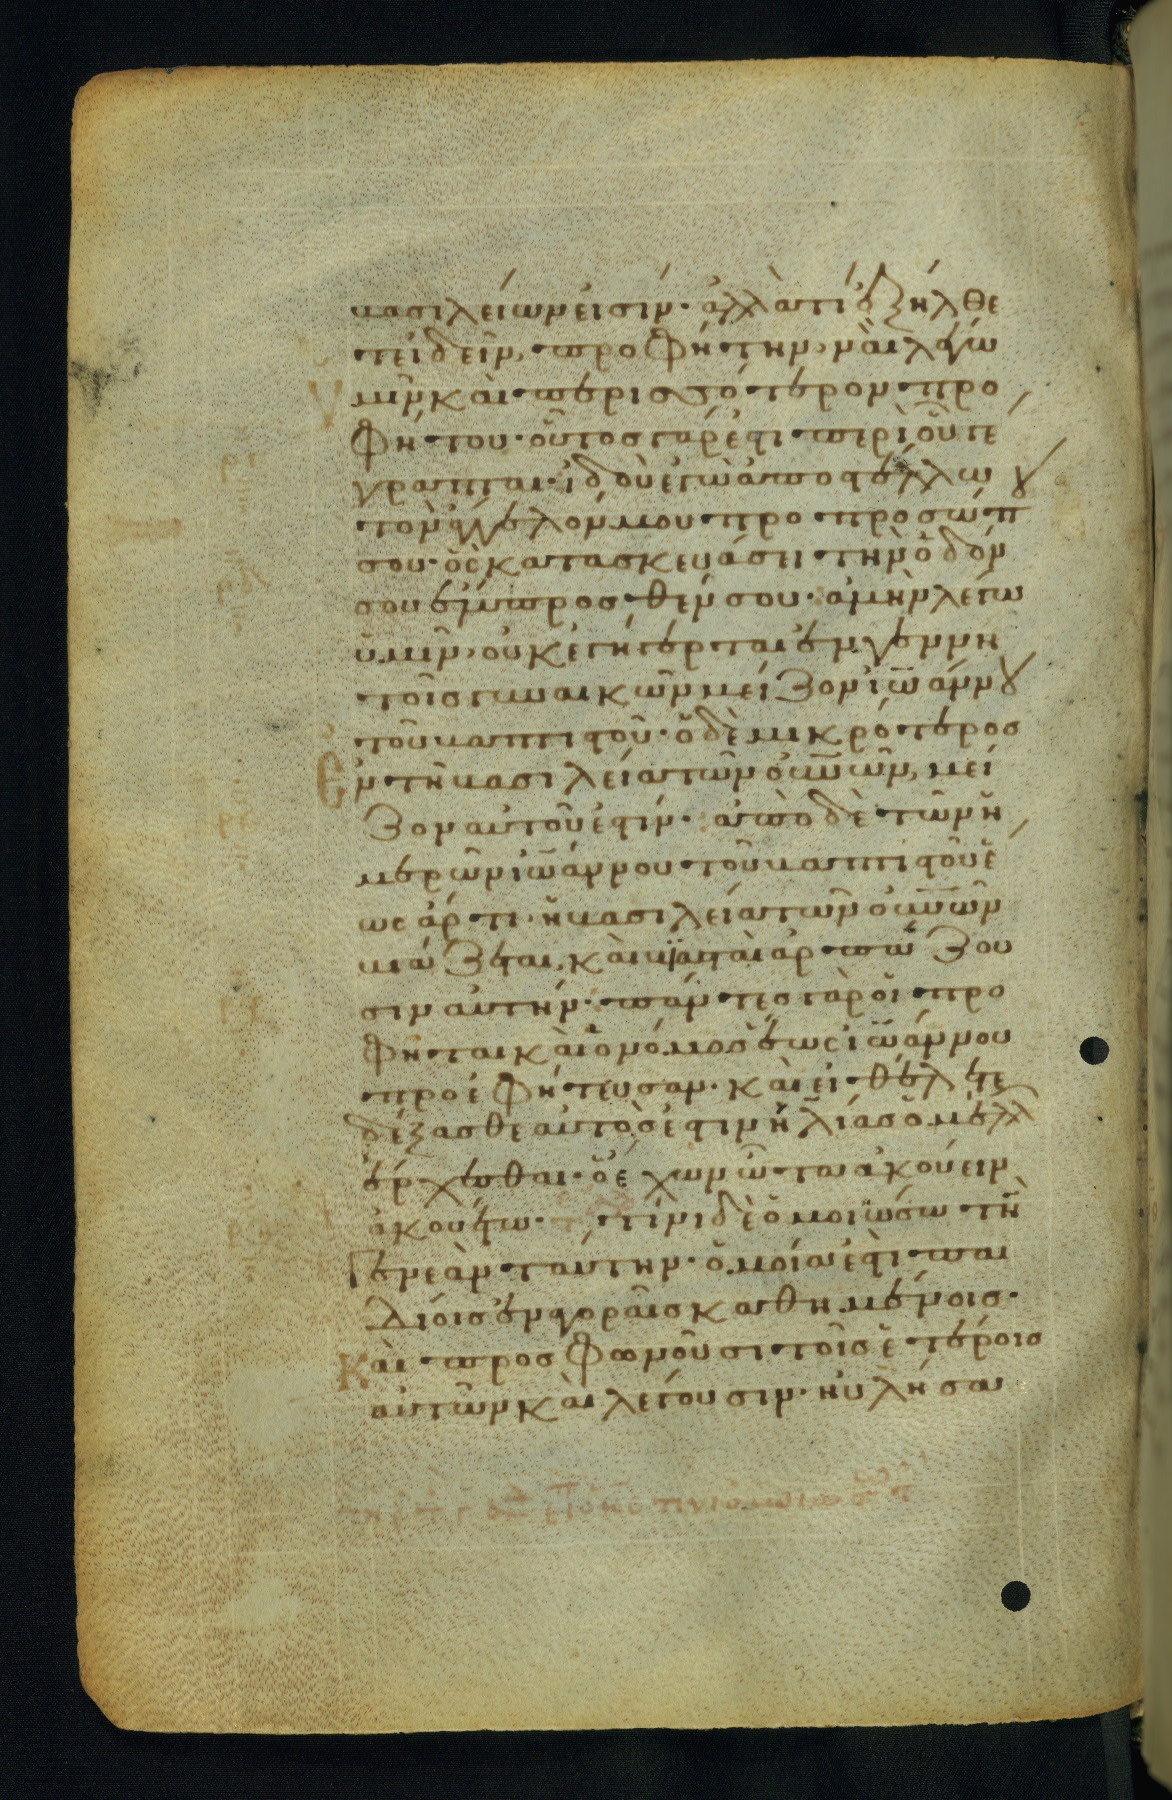 βασιλείων εἰσίν· ἀλλὰ τί ἐξήλθε
τε ἰδεῖν, προφήτην, ναὶ λέγω
ὑμῖν καὶ περισσότερον προ
φήτου· οὗτος γάρ ἐστι περὶ οὗ γέ
γραπται· ἰδοὺ ἐγὼ ἀποστέλλω
τὸν ἄγγελόν μου προ προσώπου
σου· ὃς κατασκευάσει τὴν ὁδόν
σου ἔμπροσθέν σου· ἀμὴν λέγω
ὑμῖν, οὐκ ἐγήγερται ἐν γεννη
τοῖς γυναικῶν μείζον ἰω̅άννου
τοῦ βαπτιστοῦ· ὁ δὲ μικρότερος
ἐν τῆ βασιλεία τῶν οὐ̅νῶν, μεί
ζον αὐτοῦ ἐστίν· ἀπὸ δὲ τῶν ἡ
μερῶν ἰω̅άννου τοῦ βαπτιστοῦ ἕ
ως ἄρτι· ἡ βασιλεία τῶν οὐ̅νῶν
βιάζεται, καὶ βιασταὶ ἁρπάζου
σιν αὐτήν· πάντες γὰρ οἱ προ
φῆται καὶ ὁ νόμος ἕως ἰω̅άννου
προεφήτευσαν· καὶ εἰ θέλετε
δέξασθε αὐτός ἐστιν ἠλίας ὁ μέλλ
ἔρχεσθαι· ὁ ἔχων ὦτα ἀκούειν
ἀκουέτω· τίνι δὲ ὁμοιώσω τὴν
γενεὰν ταύτην· ὁμοία ἐστὶ παι
δίοις ἐν ἀγοραῖς καθημένοις·
καὶ προσφωνοῦσι τοῖς ἑτέροις
αὐτῶν καὶ λέγουσιν· ηὐλήσα